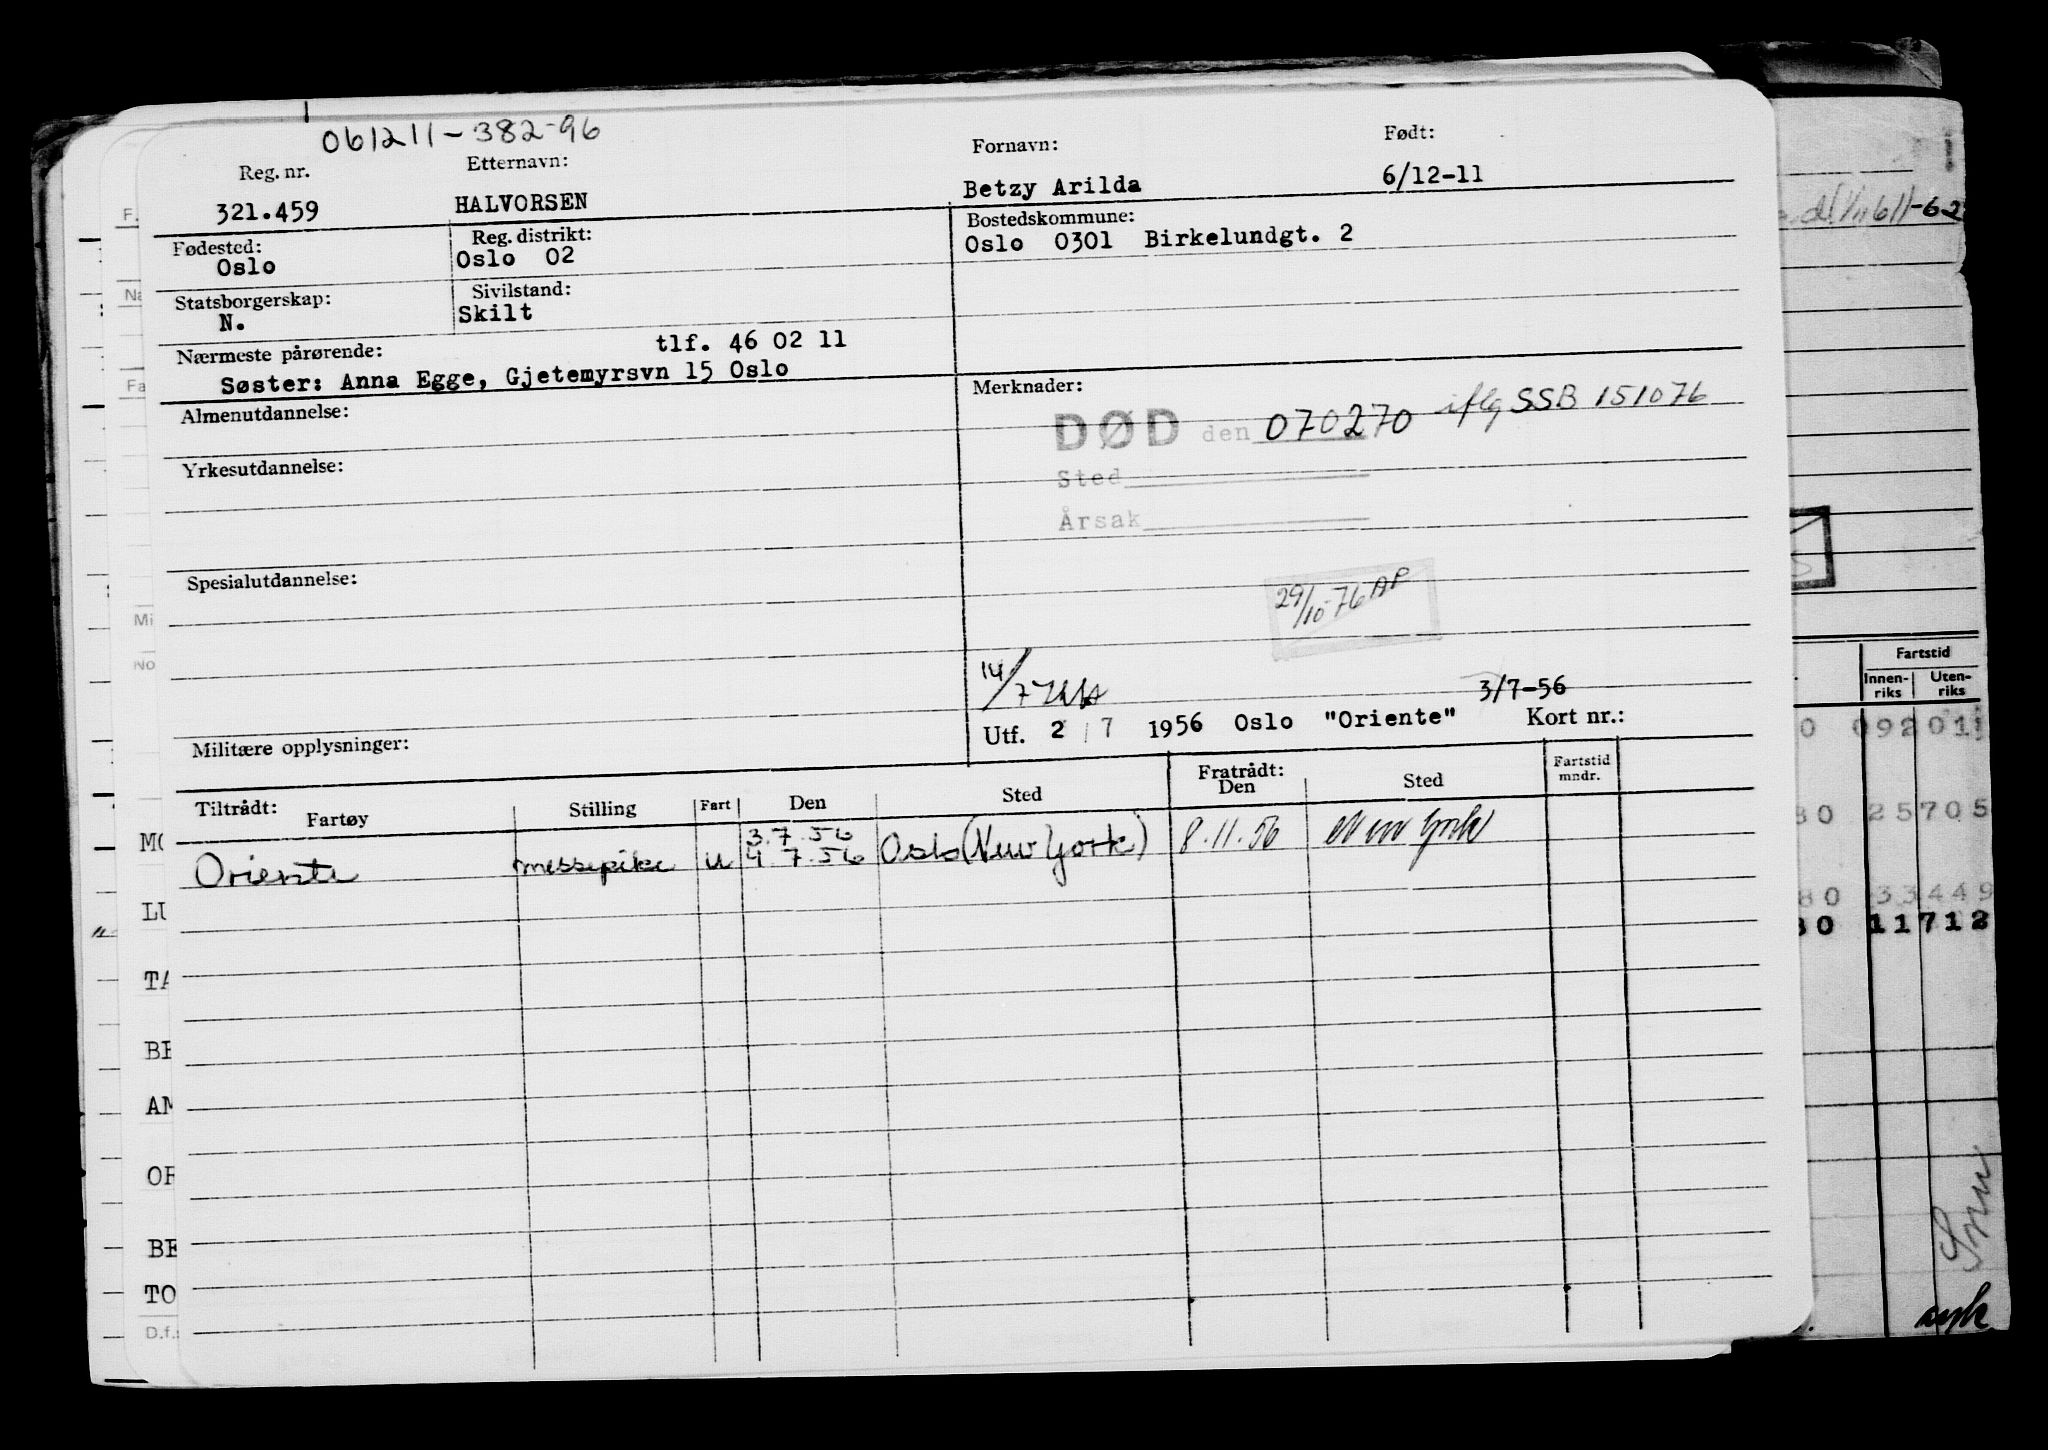 061211-382-96
Reg. nr. Etternavn: Fornavn: Født:
321.459 HALVORSEN Betzy Arilda 6/12-11
Fødested: Reg. distrikt: Bostedskommune:
Oslo Oslo 02 Oslo 0301 Birkelundgt. 2
Statsborgerskap: Sivilstand:
N. Skilt
Nærmeste pårørende: tlf. 46 02 11
Søster: Anna Egge, Gjetemyrsvn 15 Oslo
Almenutdannelse:
Yrkesutdannelse:
Spesialutdannelse:
Militære opplysninger:
Merknader:
DØD den 070270 iflg SSB 151076
Sted
Årsak
29/10-76 AP
14/7
3/7-56
Utf. 2/7 1956 Oslo "Oriente" Kort nr.:
Tiltrådt: Fratrådt:
Fartøy Stilling Fart Den Sted Den Sted Fartstid mndr.
3.7.56
Oriente messepike U 4.7.56 Oslo (New York) 8.11.56 New York
F.
Na
Fa
Mi
No
MO
LU
TA
BE
AM
OR
BE
TO
D.f.
11-62
Fartstid
Innen-riks Uten-riks
0 092011
80 25705
80 33449
80 11712